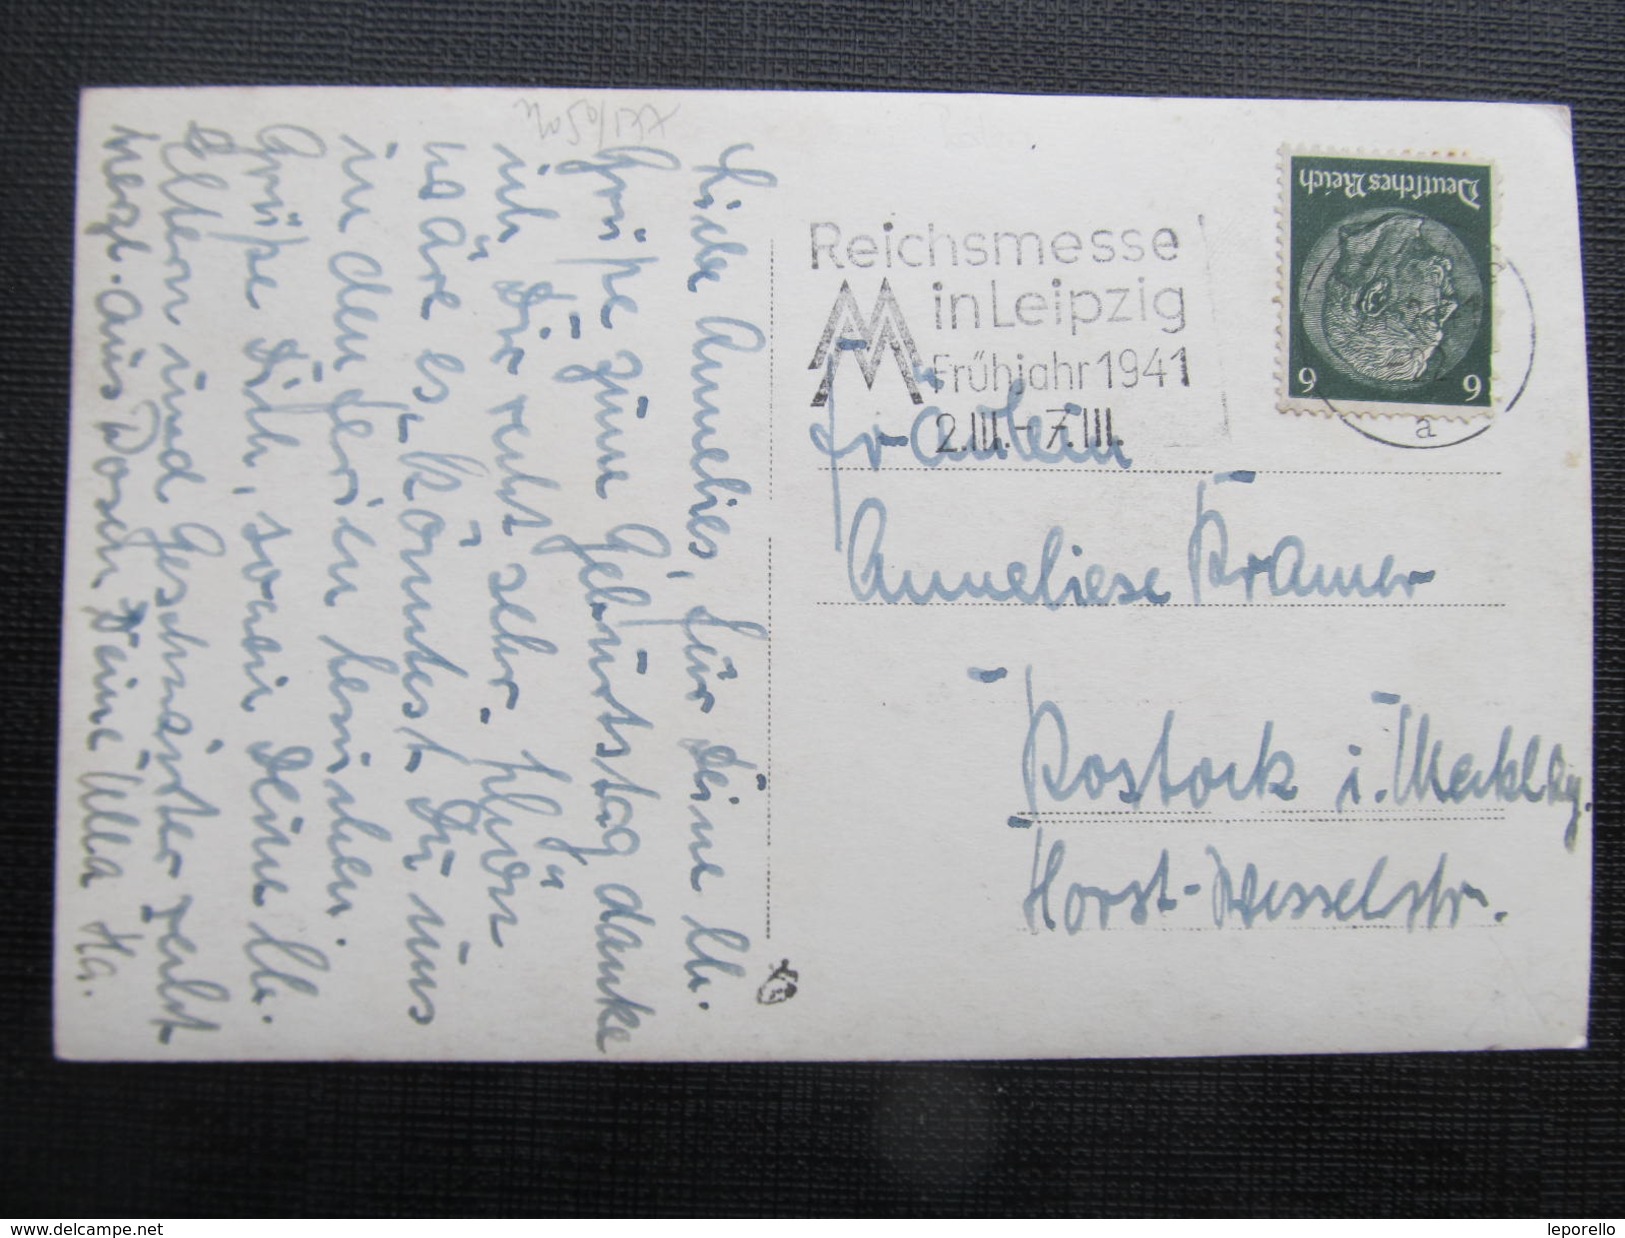 Liebe Annelies, für Deine lb.
Grüße zum Geburtstag danke
ich Dir recht sehr. Schön
wäre es, könntest Du uns
in den Ferien besuchen.
Grüße Dich, sowie Deine lb.
Eltern und Geschwister recht
herzl. aus Posen Deine Ulla Ha.
Reichsmesse
in Leipzig
Frühjahr 1941
2.III.-7.III.
Deutsches Reich
6 6
a
Fräulein
Anneliese Kramer
Rostock i. Mecklbg.
Horst-Wesselstr.
www.delcampe.net
leporello